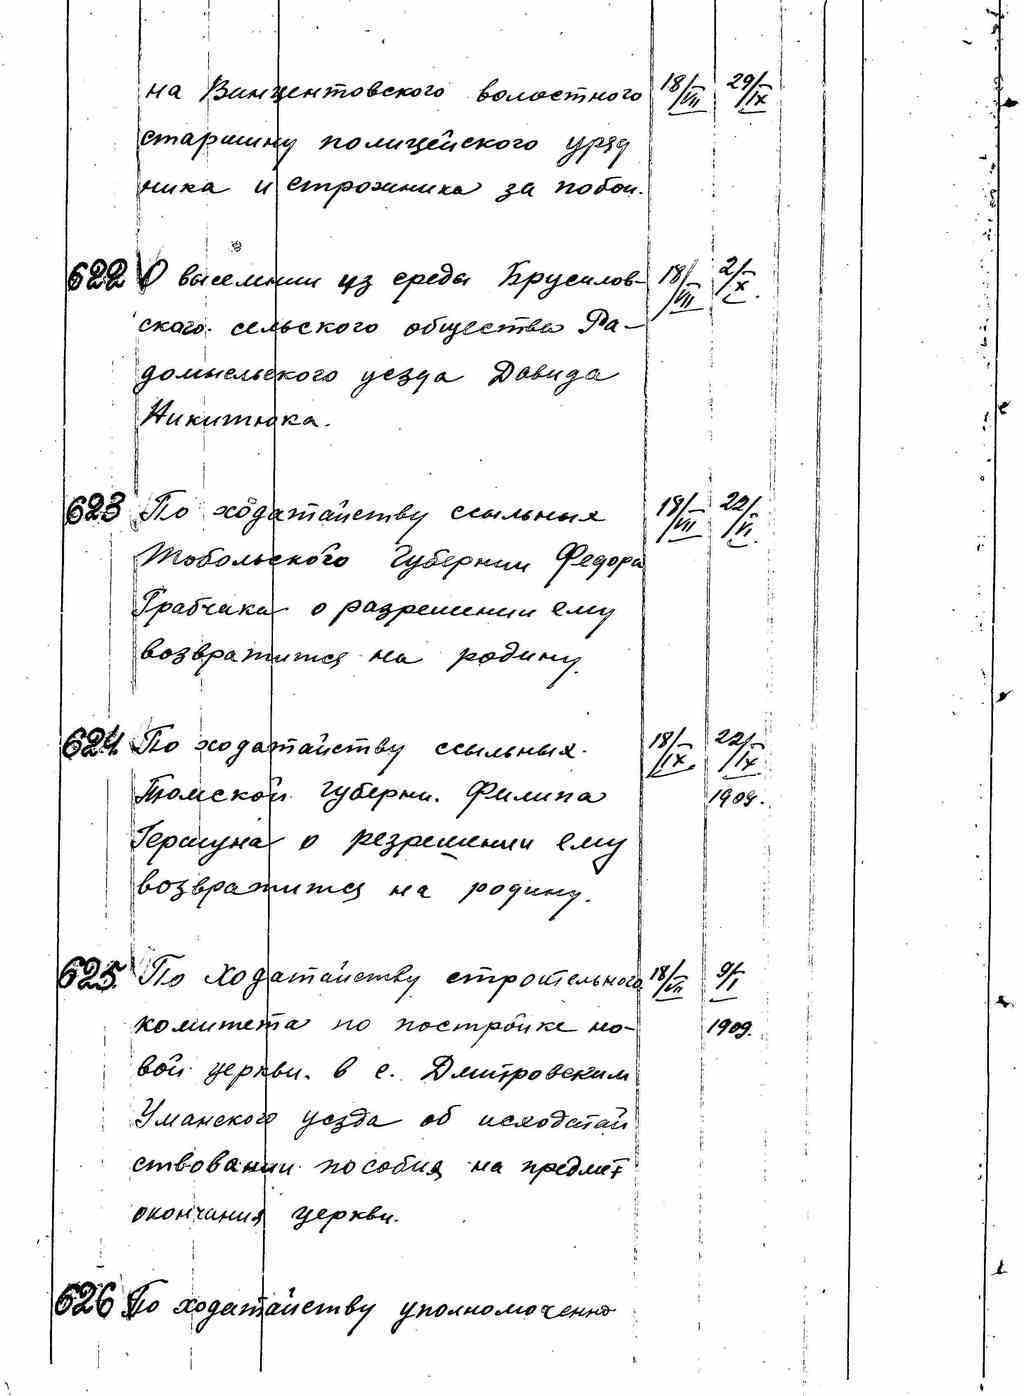 на Винцентовского волостного 18/VII 29/IX
старшину полицейского уряд
ника и стражника за побои.
622 О выселнии из среды Брусилов- 18/VII 2/X
ского сельского общества Ра-
домысльского уезда Давида
Никитюка.
623 По ходатайству ссыльных 18/VII 22/VI
Тобольского Губернии Федора
Грабчака о разрешении ему
возвратится на родину.
624 По ходатайству ссыльных 18/IX 22/IX
Томской Губерни. Филипа 1909.
Гершуна о резрешении ему
возвратится на родину.
625 По Ходатайству строительного 18/VII 9/I
комитета по постройке но- 1909.
вой церкви. в с. Дмитровским
Уманского уезда об исходатай
ствовании пособия на предмет
окончания церкви.
626 По ходатайству уполномоченно